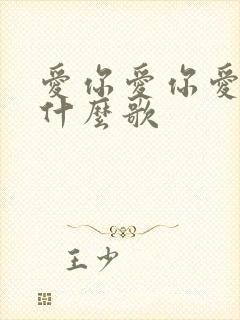 愛你愛你愛
什麼歌
王少